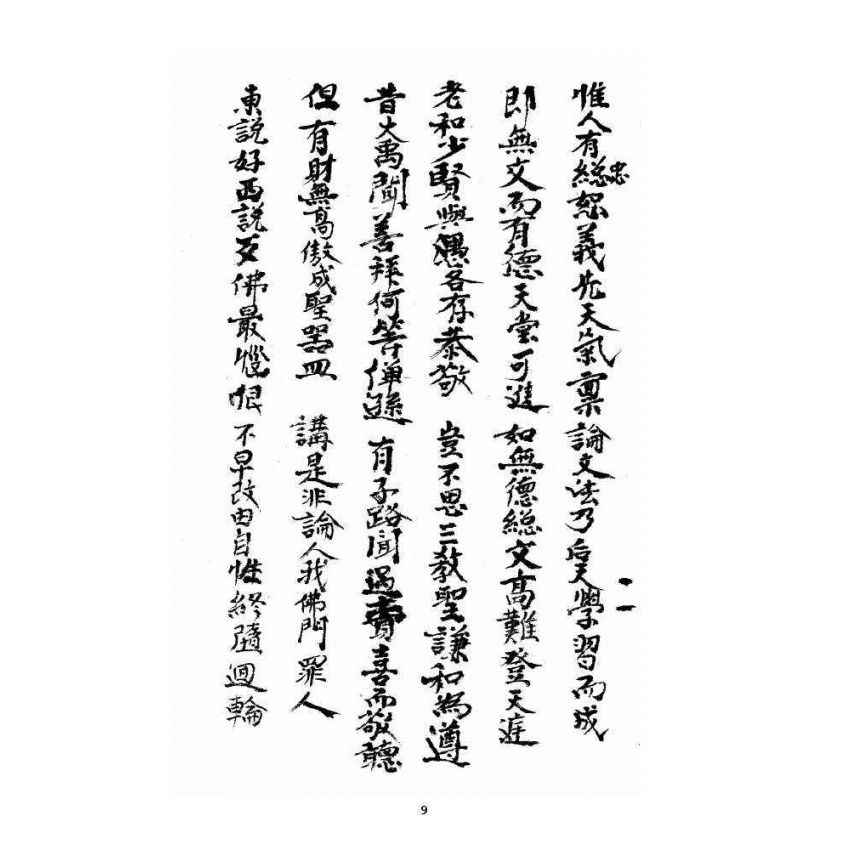 惟人有緫忠恕義先天氣禀論文法乃後天學習而成
即無文而有德天堂可進 如無德緫文高難登天涯
老和少賢與愚各存恭敬 豈不思三教聖謙和為遵
昔大禹聞善拜何等僤遜 有子路聞過責喜而敬聽
但有財無高傲成聖器皿 講是非論人我佛門罪人
東說好西說歹佛最惱恨 不早改由自性終隨迴輪
9